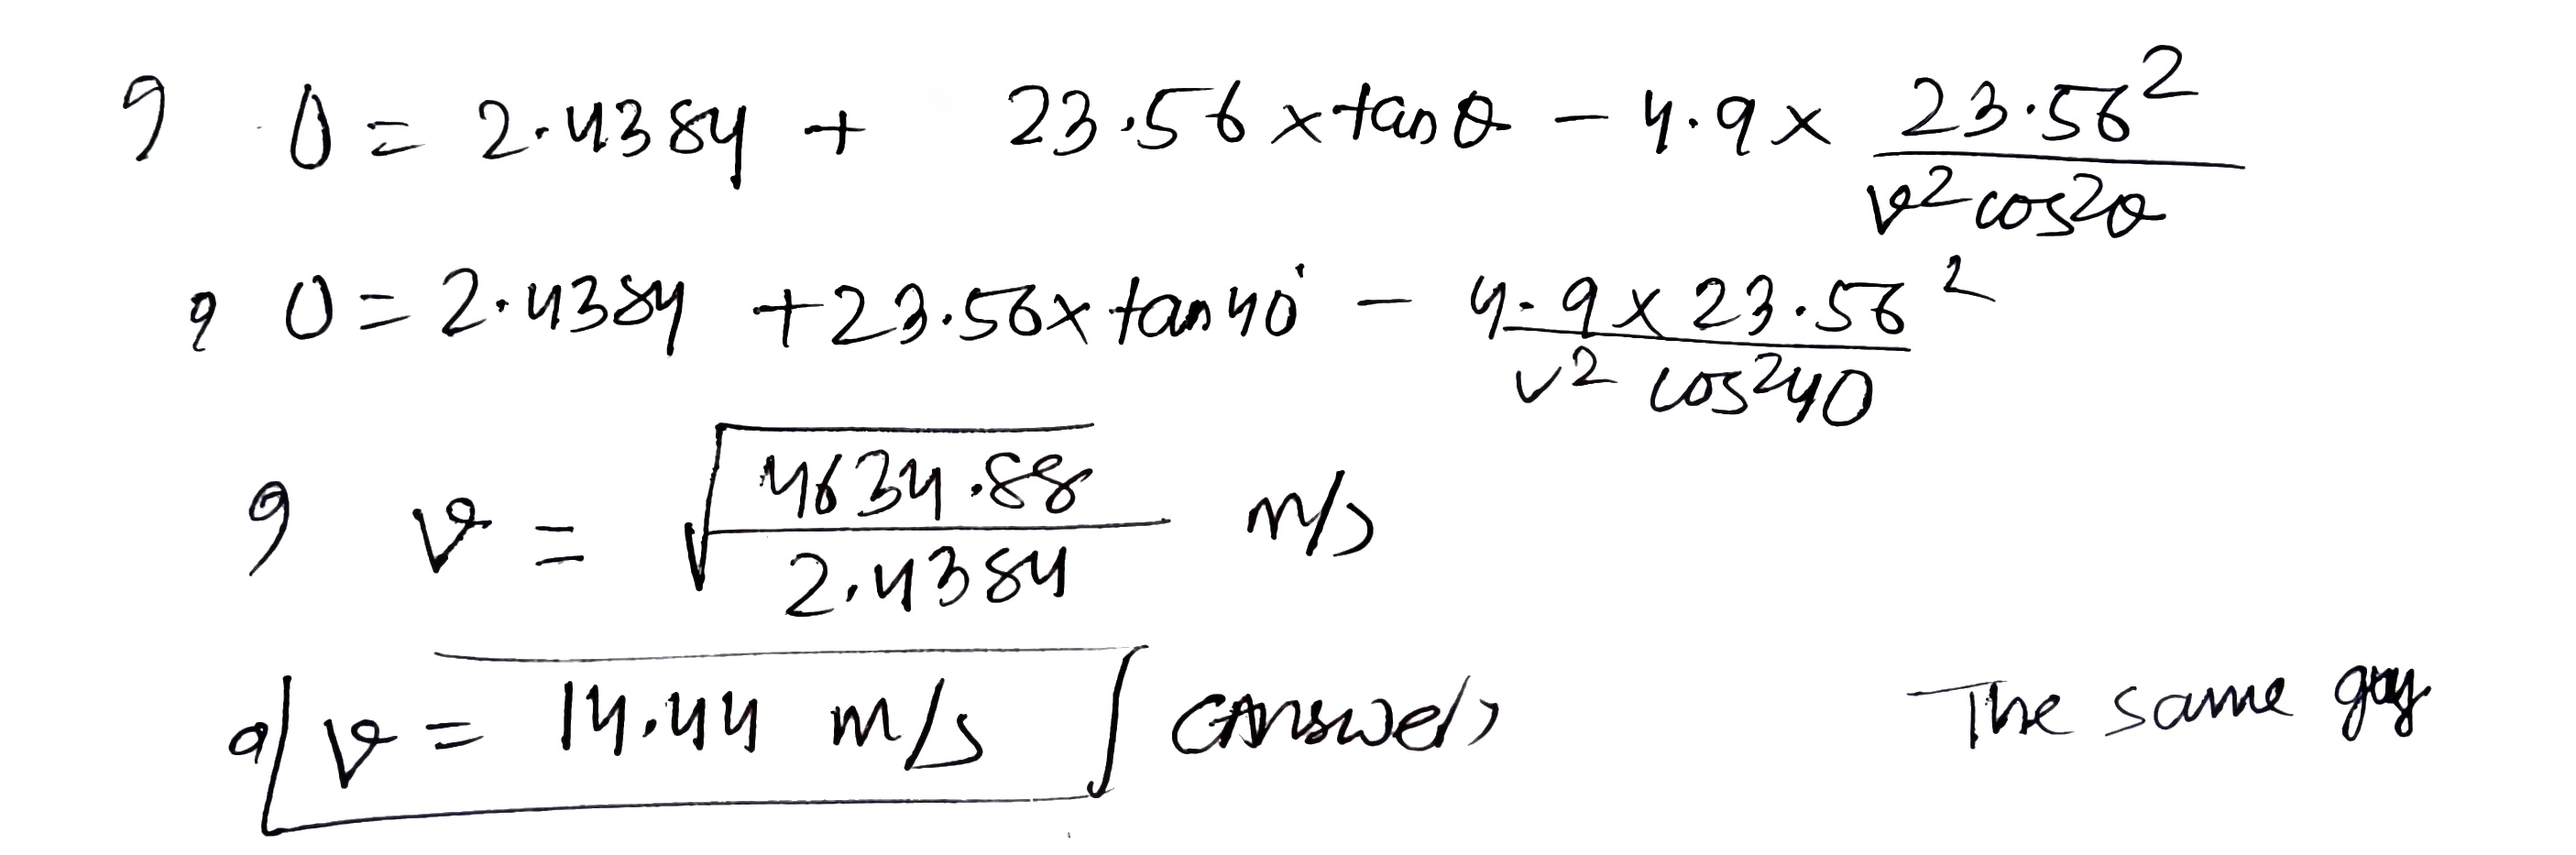 9 0 = 2.4384 + 23.56 × tanθ − 4.9 × 23.56² / v² cos²θ
9 0 = 2.4384 + 23.56 × tan 40° − 4.9 × 23.56² / v² cos² 40
9 v = √(4634.88 / 2.4384) m/s
9 v = 14.44 m/s Answer The same guy